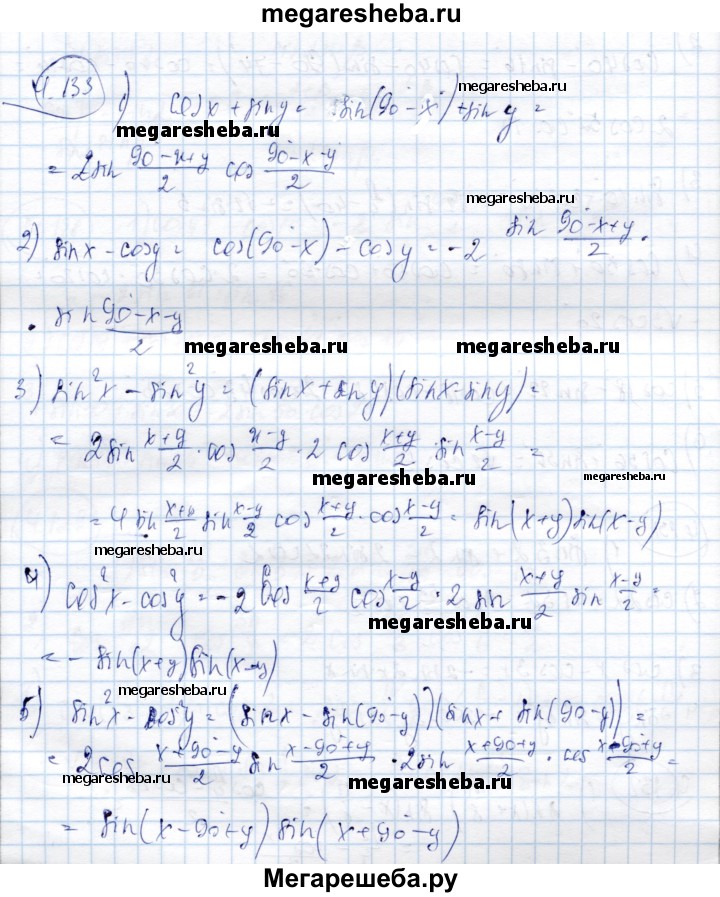 megaresheba.ru
4.133
1) cos x + sin y = sin(90°-x) + sin y =
megaresheba.ru
megaresheba.ru
= 2 sin (90°-x+y)/2 cos (90°-x-y)/2
megaresheba.ru
2) sin x - cos y = cos(90°-x) - cos y = -2 sin (90°-x+y)/2 ·
· sin (90°-x-y)/2
megaresheba.ru megaresheba.ru
3) sin²x - sin²y = (sin x + sin y)(sin x - sin y) =
= 2 sin (x+y)/2 · cos (x-y)/2 · 2 cos (x+y)/2 · sin (x-y)/2 =
megaresheba.ru megaresheba.ru
= 4 sin (x+y)/2 sin (x-y)/2 cos (x+y)/2 · cos (x-y)/2 = sin(x+y) sin(x-y)
megaresheba.ru
4) cos²x - cos²y = -2 cos (x+y)/2 cos (x-y)/2 · 2 sin (x+y)/2 sin (x-y)/2 =
megaresheba.ru
= - sin(x+y) sin(x-y)
megaresheba.ru
5) sin²x - cos²y = (sin x - sin(90°-y))(sin x + sin(90-y)) =
= 2 cos (x+90°-y)/2 sin (x-90°+y)/2 · 2 sin (x+90+y)/2 · cos (x-90°+y)/2 =
megaresheba.ru megaresheba.ru
= sin(x-90°+y) sin(x+90°-y)
Мегарешеба.ру